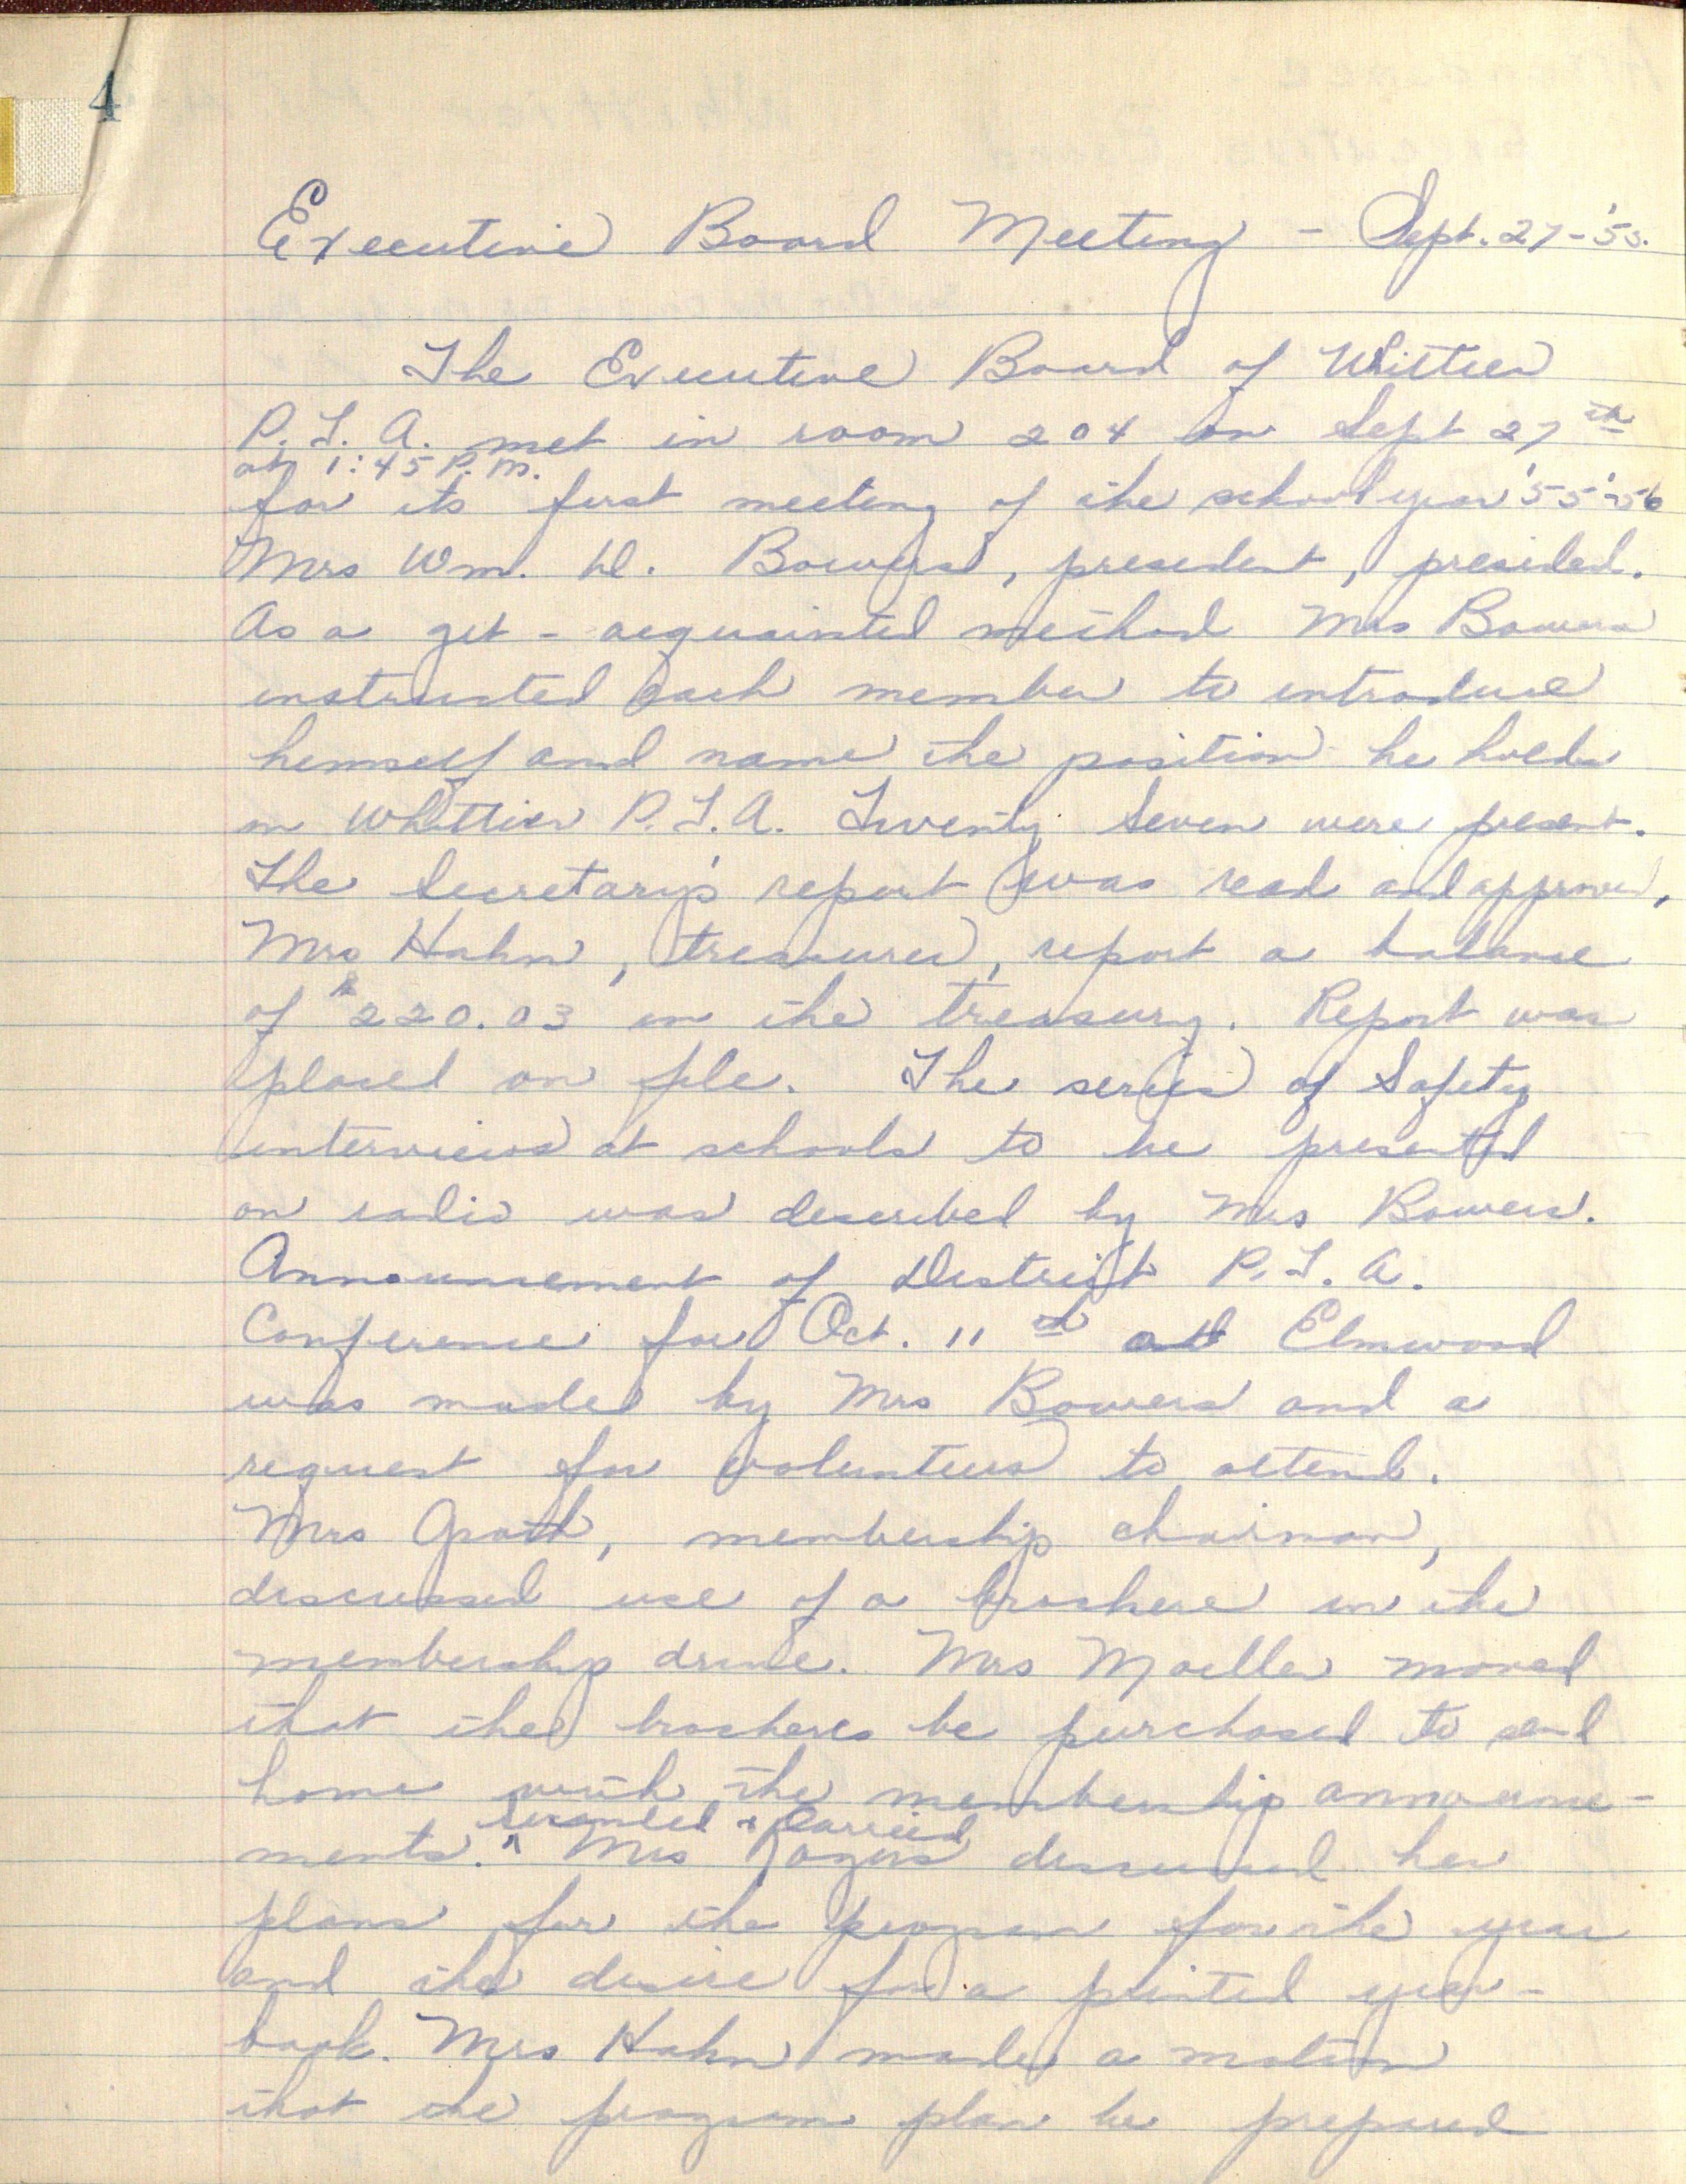 4
Executive Board Meeting - Sept. 27-'55.
The Executive Board of Whittier
P.T.A. met in room 204 on Sept 27th
at 1:45 P.M.
for its first meeting of the school year '55-'56
Mrs Wm. D. Bowers, president, presided.
As a get-acquainted method Mrs Bowers
instructed each member to introduce
himself and name the position he holds
in Whittier P.T.A. Twenty Seven were present.
The Secretary's report was read and approved.
Mrs Hahn, treasurer, report a balance
of $220.03 in the treasury. Report was
placed on file. The series of Safety
interviews at schools to be presented
on radio was described by Mrs Bowers.
Announcement of District P.T.A.
Conference for Oct. 11th at Elmwood
was made by Mrs Bowers and a
request for volunteers to attend.
Mrs Groth, membership chairman,
discussed use of a broshere in the
membership drive. Mrs Moeller moved
that the brosheres be purchased to send
home with the membership announce-
seconded & Carried
ments. ^ Mrs discussed her
plans for the program for the year
and the desire for a printed year-
book. Mrs Hahn made a motion
that the program plan be prepared